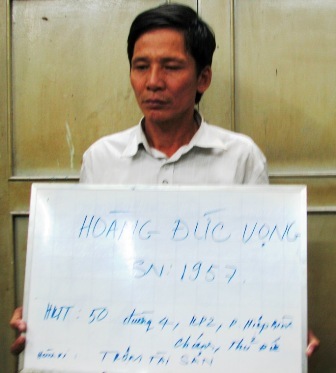 HOÀNG ĐỨC VỌNG
SN: 1957.
HKTT: 50 đường 4, KP2, P. Hiệp Bình
Chánh, Thủ Đức
TRỘM TÀI SẢN